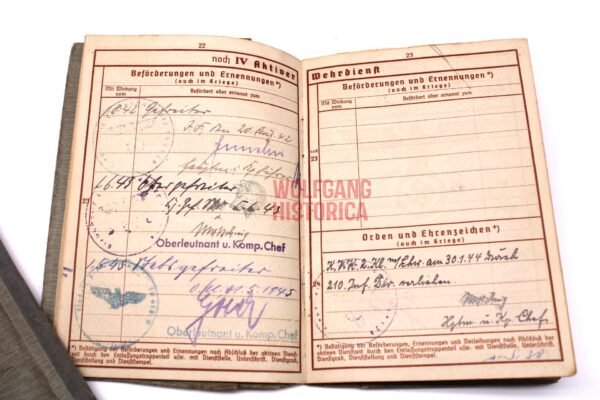 22
noch IV Aktiver
Beförderungen und Ernennungen*)
(auch im Kriege)
Mit Wirkung vom
Befördert oder ernannt zum
1.8.42 Gefreiter
den 20. Aug. 42
1.6.43 Obergefreiter
23
Oberleutnant u. Komp.Chef
1.5.45 Stabsgefreiter
1.5.1945
Oberleutnant u. Komp.Chef
*) Bestätigung der Beförderungen und Ernennungen nach Abschluß der aktiven
Dienstzeit durch den Entlassungstruppenteil usw. mit Dienststelle, Unterschrift,
Dienstgrad, Dienststellung und Dienststempel.
23
Wehrdienst
Beförderungen und Ernennungen*)
(auch im Kriege)
Mit Wirkung vom
Befördert oder ernannt zum
noch
23
Orden und Ehrenzeichen*)
(auch im Kriege)
K.V.K. 2. Kl. m/Schw. am 30.1.44 durch
24
210. Inf. Div. verliehen.
Hptm. u. Kp. Chef
*) Bestätigung der Beförderungen, Ernennungen und Verleihungen nach Abschluß der
aktiven Dienstzeit durch den Entlassungstruppenteil usw. mit Dienststelle, Unterschrift,
Dienstgrad, Dienststellung und Dienststempel.
WOLFGANG
HISTORICA